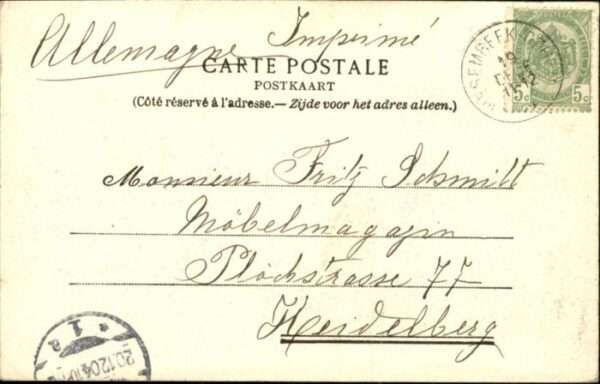 Allemagne Imprimé
CARTE POSTALE
POSTKAART
(Côté réservé à l'adresse.— Zijde voor het adres alleen.)
5c 5c
19
Monsieur Fritz Schmitt
Möbelmagazin
Plöckstrasse 77
Heidelberg
* 1 a
20.12.04.10-